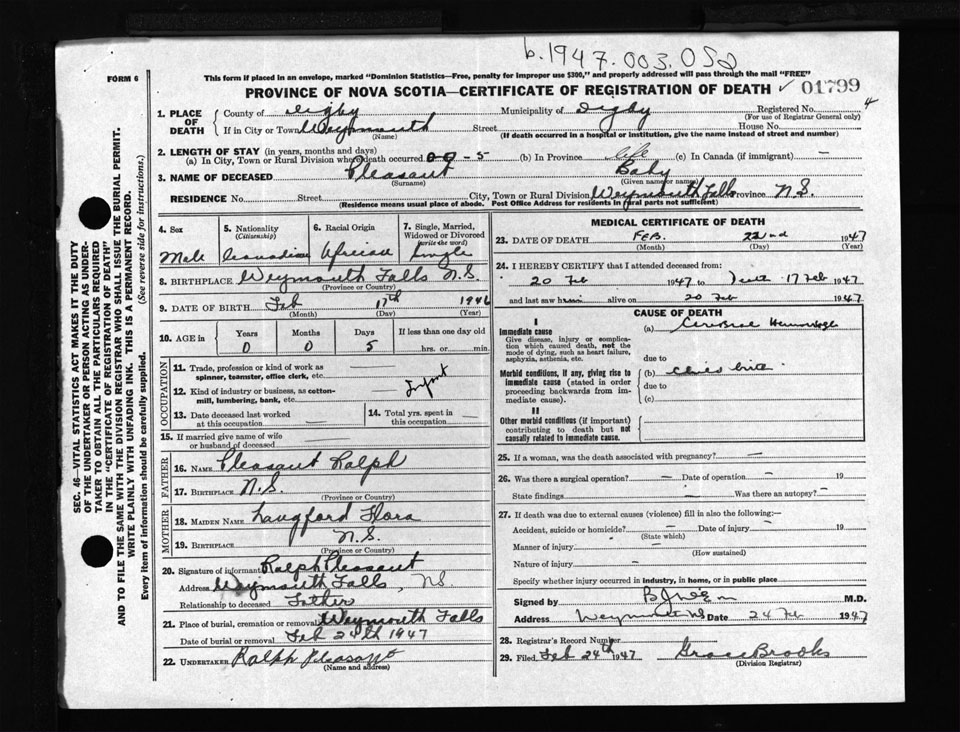 b.1947.003.052
FORM 6
This form if placed in an envelope, marked "Dominion Statistics—Free, penalty for improper use $300," and properly addressed will pass through the mail "FREE"
PROVINCE OF NOVA SCOTIA—CERTIFICATE OF REGISTRATION OF DEATH ✓ 01799
1. PLACE OF DEATH
County of Digby Municipality of Digby Registered No. 4
(For use of Registrar General only)
If in City or Town Weymouth Street House No.
(Name) (If death occurred in a hospital or institution, give the name instead of street and number)
2. LENGTH OF STAY (in years, months and days)
(a) In City, Town or Rural Division where death occurred 0-0-5 (b) In Province life (c) In Canada (if immigrant) —
3. NAME OF DECEASED Pleasant Baby
(Surname) (Given name or names)
RESIDENCE No. Street City, Town or Rural Division Weymouth Falls Province N.S.
(Residence means usual place of abode. Post Office Address for residents in rural parts not sufficient)
4. Sex 5. Nationality (Citizenship) 6. Racial Origin 7. Single, Married, Widowed or Divorced (write the word)
Male Canadian African Single
8. BIRTHPLACE Weymouth Falls N.S.
(Province or Country)
9. DATE OF BIRTH Feb 17th 1946
(Month) (Day) (Year)
10. AGE in Years Months Days If less than one day old
0 0 5 hrs. or min.
OCCUPATION
11. Trade, profession or kind of work as spinner, teamster, office clerk, etc.
12. Kind of industry or business, as cotton-mill, lumbering, bank, etc.
Infant
13. Date deceased last worked at this occupation —
14. Total yrs. spent in this occupation —
15. If married give name of wife or husband of deceased
FATHER
16. NAME Pleasant Ralph
17. BIRTHPLACE N.S.
(Province or Country)
MOTHER
18. MAIDEN NAME Langford Flora
19. BIRTHPLACE N.S.
(Province or Country)
20. Signature of informant Ralph Pleasant
Address Weymouth Falls, NS.
Relationship to deceased Father
21. Place of burial, cremation or removal Weymouth Falls
Date of burial or removal Feb 24th 1947
22. UNDERTAKER Ralph Pleasant
(Name and address)
MEDICAL CERTIFICATE OF DEATH
23. DATE OF DEATH Feb. 22nd 1947
(Month) (Day) (Year)
24. I HEREBY CERTIFY that I attended deceased from:
20 Feb 1947 to 17 Feb 1947
and last saw him alive on 20 Feb 1947
CAUSE OF DEATH
I
Immediate cause (a) Cerebral Hemorrhage
Give disease, injury or complication which caused death, not the mode of dying, such as heart failure, asphyxia, asthenia, etc.
due to
Morbid conditions, if any, giving rise to immediate cause (stated in order proceeding backwards from immediate cause). (b)
due to
(c)
II
Other morbid conditions (if important) contributing to death but not causally related to immediate cause.
25. If a woman, was the death associated with pregnancy? —
26. Was there a surgical operation? — Date of operation — 19
State findings — Was there an autopsy? —
27. If death was due to external causes (violence) fill in also the following:—
Accident, suicide or homicide? — Date of injury — 19
(State which)
Manner of injury —
(How sustained)
Nature of injury —
Specify whether injury occurred in industry, in home, or in public place
Signed by M.D.
Address Weymouth NS Date 24 Feb 1947
28. Registrar's Record Number
29. Filed Feb 24th 1947 Grace Brooks
(Division Registrar)
SEC. 46—VITAL STATISTICS ACT MAKES IT THE DUTY
OF THE UNDERTAKER OR PERSON ACTING AS UNDER-
TAKER TO OBTAIN ALL THE PARTICULARS REQUIRED
IN THE "CERTIFICATE OF REGISTRATION OF DEATH"
AND TO FILE THE SAME WITH THE DIVISION REGISTRAR WHO SHALL ISSUE THE BURIAL PERMIT.
WRITE PLAINLY WITH UNFADING INK. THIS IS A PERMANENT RECORD.
Every item of information should be carefully supplied. (See reverse side for instructions.)